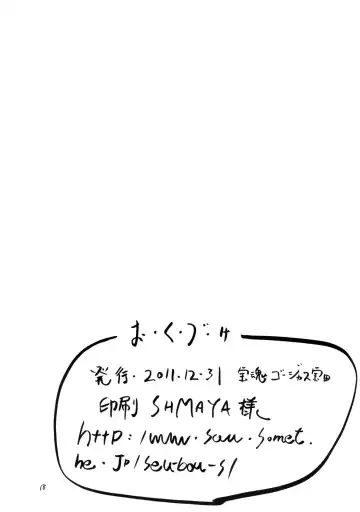 お・く・づ・け
発行・2011.12.31 宝魂ゴージャス宝田
印刷 SHIMAYA様
http://www.seu.somet.
ne.Jp/seubou-s/
18